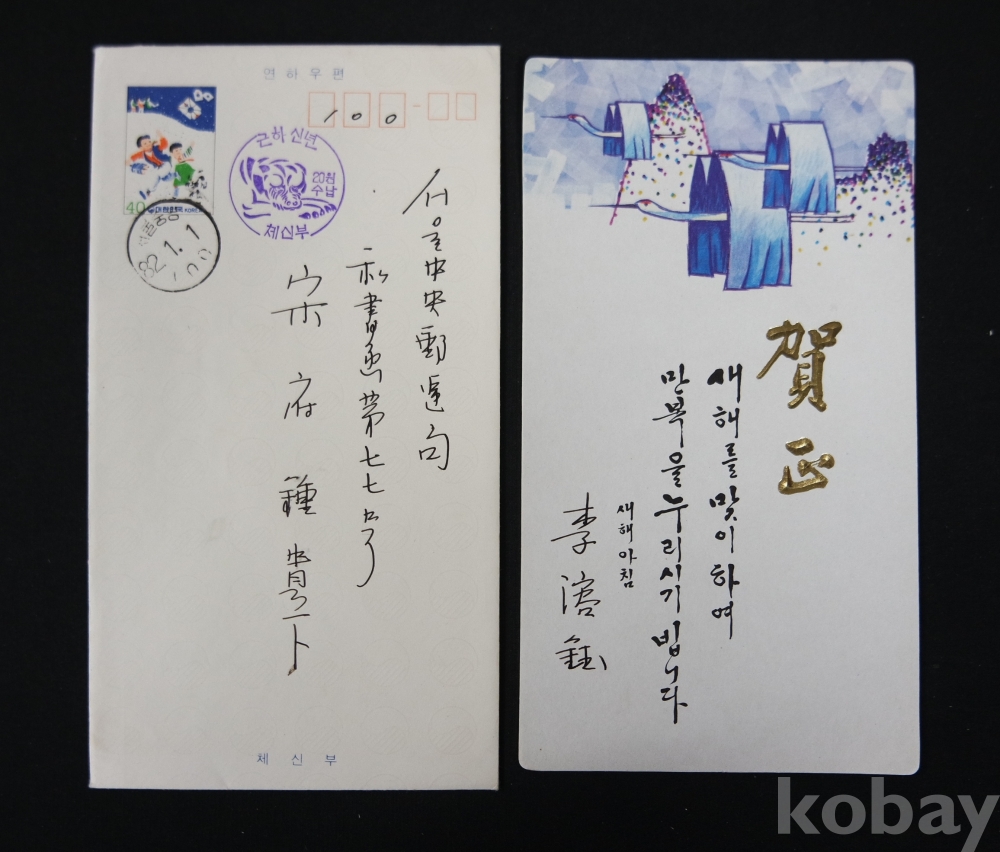 연하우편
100
40 대한민국 KOREA
근하신년
20침
수납
체신부
82.1.1
100
서울中央郵遞局
私書函第七七号
宋府 鍾 貴下
체신부
賀正
새해를 맞이하여
만복을 누리시기 빕니다
새해 아침
李
kobay